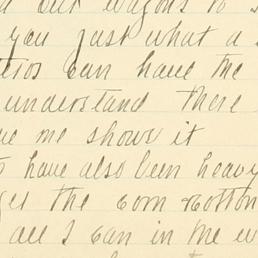 but wagons to
you just what a
can have the
understand there
me show it
have also been heavy
the corn cotton
all I can in the